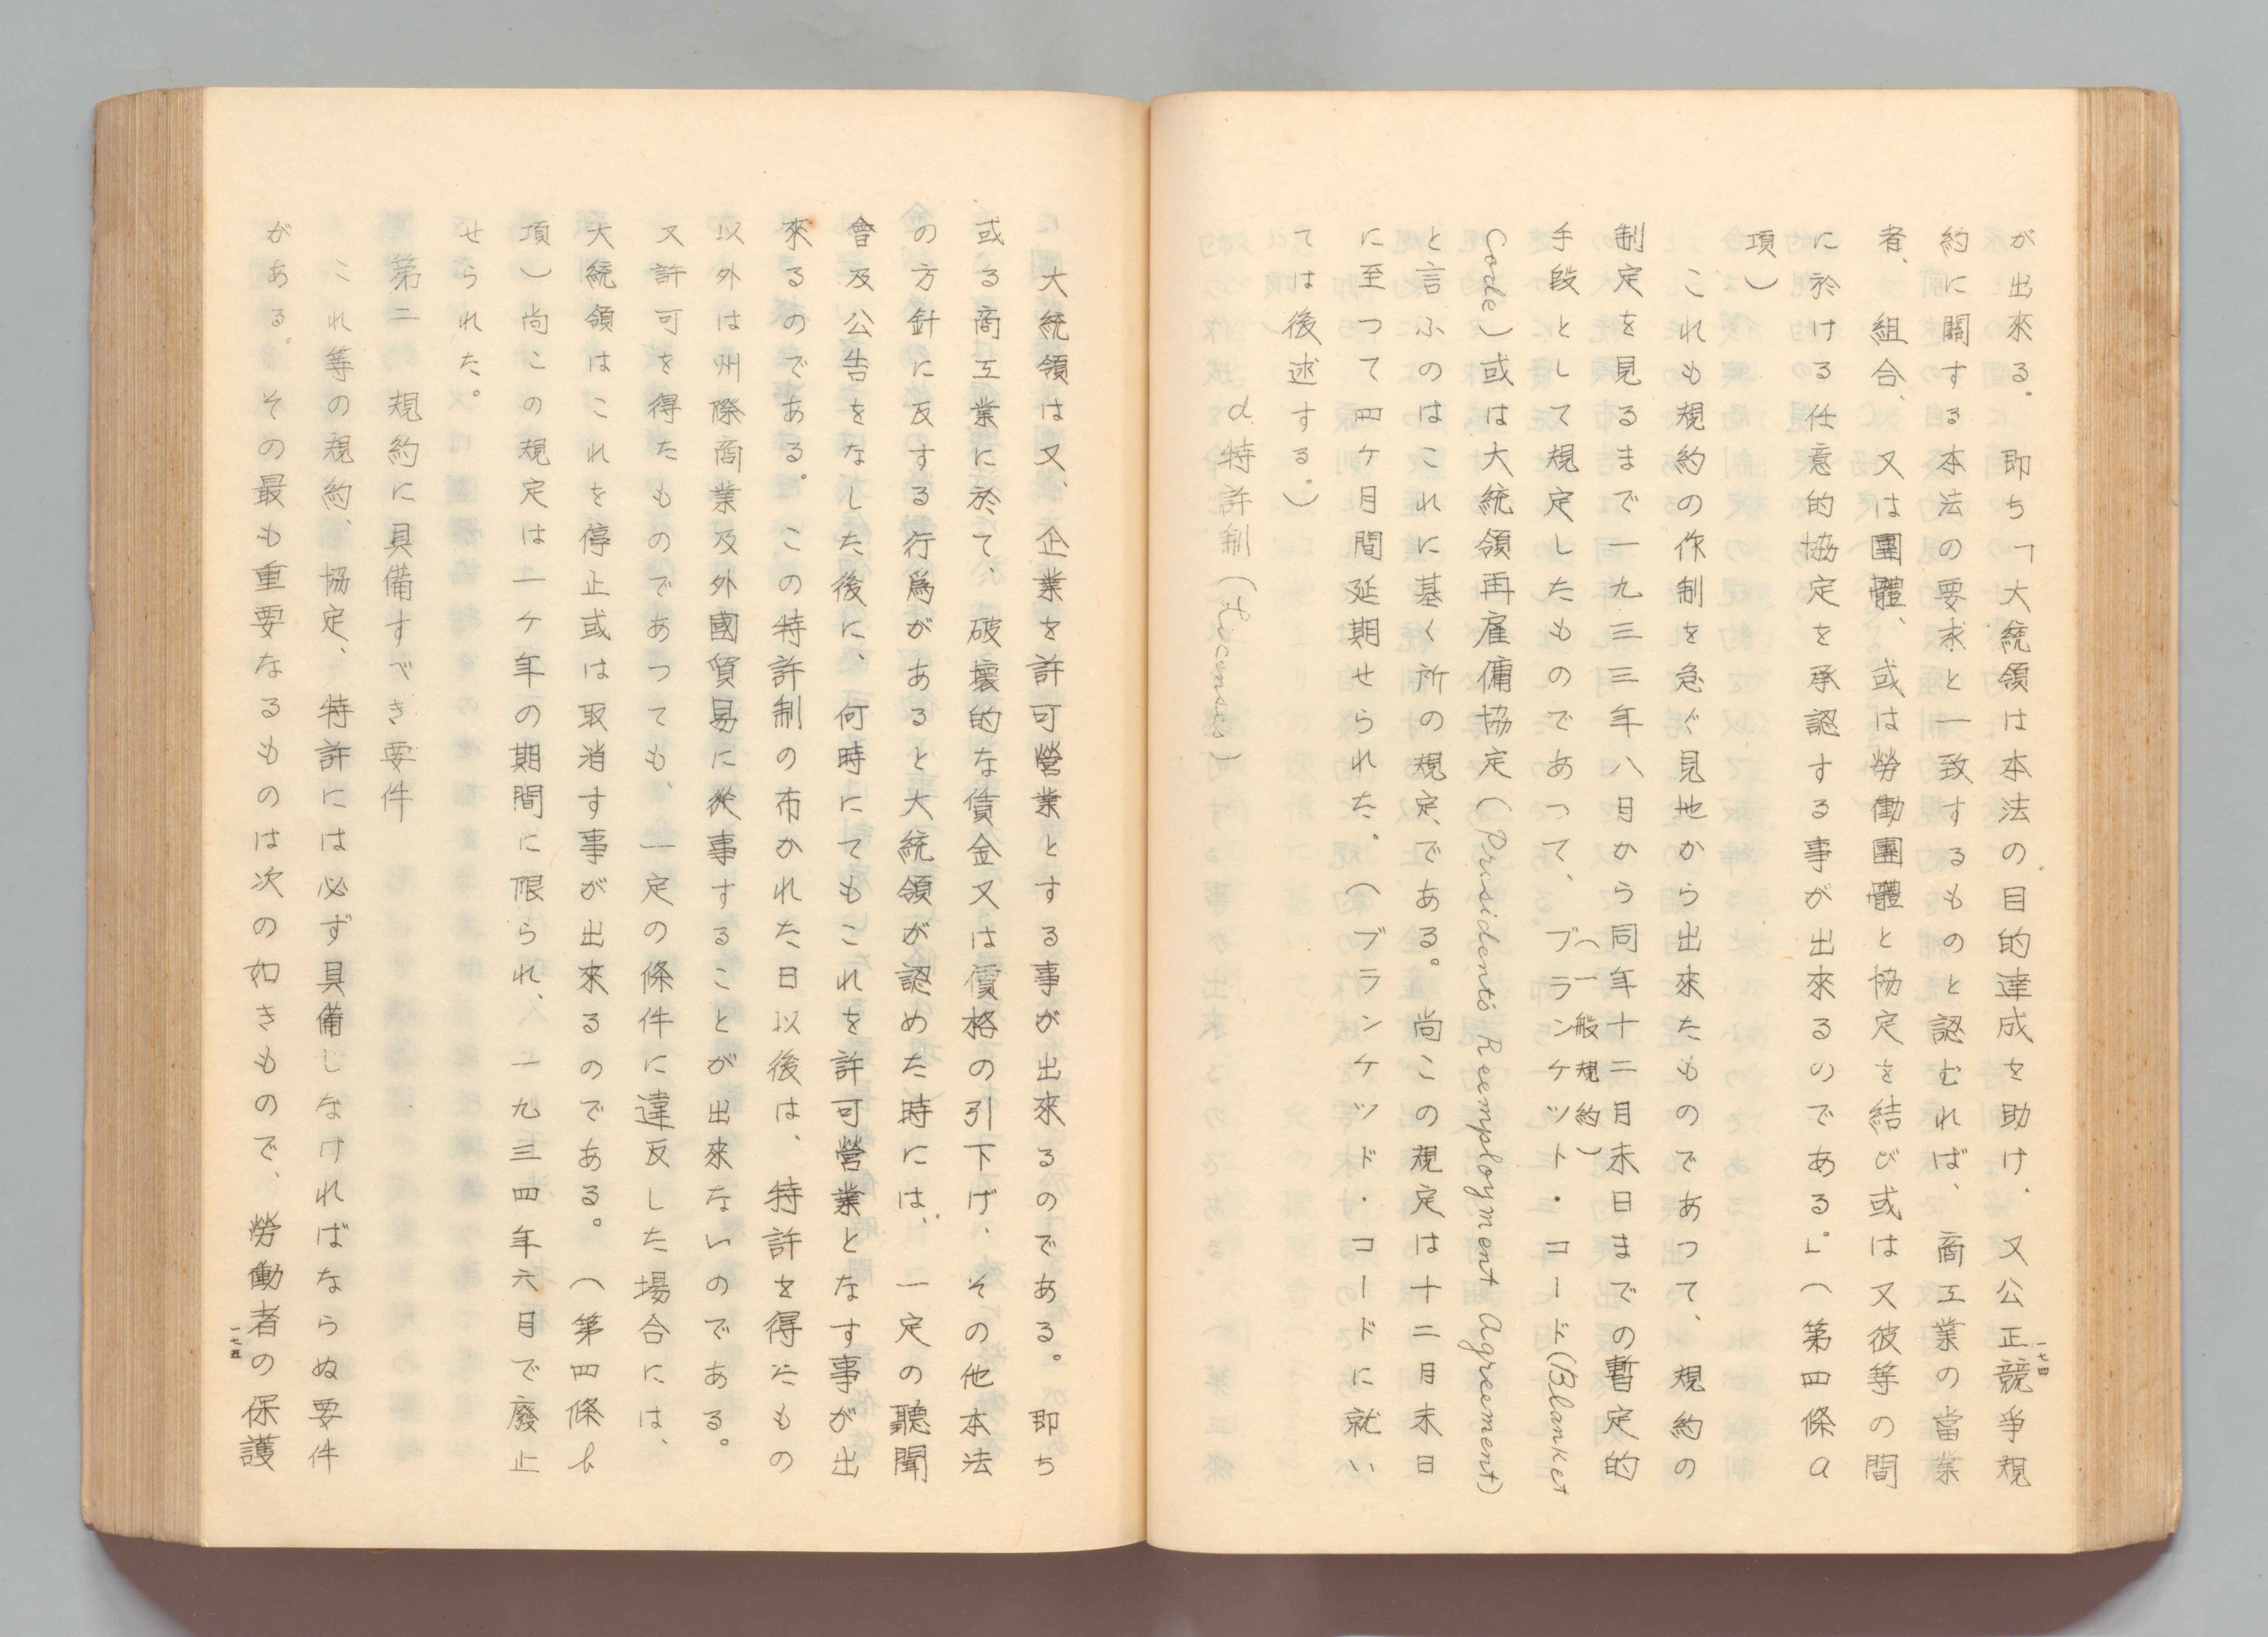 が出來る。卽ち「大統領は本法の目的達成を助け、又公正競爭規
約に關する本法の要求と一致するものと認むれば、商工業の當業
者、組合、又は團體、或は勞働團體と協定を結び或は又彼等の間
に於ける任意的協定を承認する事が出來るのである。」(第四條a
項)
これも規約の作制を急ぐ見地から出來たものであつて、規約の
制定を見るまで一九三三年八月から同年十二月末日までの暫定的
(一般規約)
手段として規定したものであつて、ブランケット・コード(Blanket
Code)或は大統領再雇傭協定(Presidentó Reemployment Agreement)
と言ふのはこれに基く所の規定である。尚この規定は十二月末日
に至つて四ケ月間延期せられた。(ブランケッド・コードに就い
ては後述する。)
d 特許制(Licenses)
一七四
大統領は又、企業を許可營業とする事が出來るのである。卽ち
或る商工業に於て、破壞的な賃金又は價格の引下げ、その他本法
の方針に反する行爲があると大統領が認めた時には、一定の聽聞
會及公告をなした後に、何時にてもこれを許可營業となす事が出
來るのである。この特許制の布かれた日以後は、特許を得たもの
以外は州際商業及外國貿易に從事することが出來ないのである。
又許可を得たものであつても、一定の條件に違反した場合には、
大統領はこれを停止或は取消す事が出來るのである。(第四條b
項)尚この規定は一ケ年の期間に限られ、一九三四年六月で廢止
せられた。
第二 規約に具備すべき要件
これ等の規約、協定、特許には必ず具備しなければならぬ要件
がある。その最も重要なるものは次の如きもので、勞働者の保護
一七五